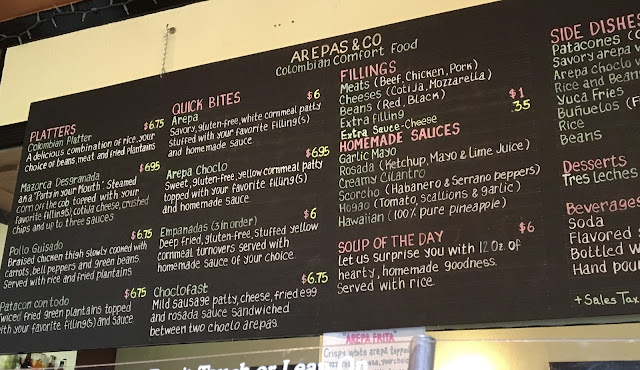 AREPAS & CO
Colombian Comfort Food
PLATTERS
Colombian Platter $6.75
A delicious combination of rice, your
choice of beans, meat and fried plantains
$6.95
Mazorca Desgranada
AKA "Party in your Mouth". Steamed
corn off the cob topped with your
favorite filling(s), cotija cheese, crushed
chips and up to three sauces
$6.75
Pollo Guisado
Braised chicken thigh slowly cooked with
carrots, bell peppers and green beans.
Served with rice and fried plantains
$6.75
Patacon con todo
Twiced fried green plantains topped
with your favorite filling(s) and sauce.
QUICK BITES
Arepa $6
Savory, gluten-free, white cornmeal patty
stuffed with your favorite filling(s)
and homemade sauce
Arepa Choclo $6.95
Sweet, gluten-free, yellow cornmeal patty
topped with your favorite filling(s)
and homemade sauce.
Empanadas (3 in order) $6
Deep fried, gluten-free, stuffed yellow
cornmeal turnovers served with
homemade sauce of your choice.
Choclofast $6.75
Mild sausage patty, cheese, fried egg
and rosada sauce sandwiched
between two choclo arepas.
FILLINGS
Meats (Beef, Chicken, Pork)
Cheeses (Cotija, Mozzarella)
Beans (Red, Black)
Extra filling $1
Extra Sauce-Cheese 35
HOMEMADE SAUCES
Garlic Mayo
Rosada (Ketchup, Mayo & Lime Juice)
Creamy Cilantro
Scorcho (Habanero & Serrano peppers)
Hogao (Tomato, scallions & garlic)
Hawaiian (100% pure pineapple)
SOUP OF THE DAY $6
Let us surprise you with 12 Oz. of
hearty, homemade goodness.
Served with rice.
SIDE DISHES
Patacones
Savory arepa
Arepa choclo
Rice and Beans
Yuca Fries
Buñuelos
Rice
Beans
Desserts
Tres Leches
Beverages
Soda
Flavored
Bottled
Hand
+ Sales Tax
"AREPA FRITA"
Crispy white arepa topped